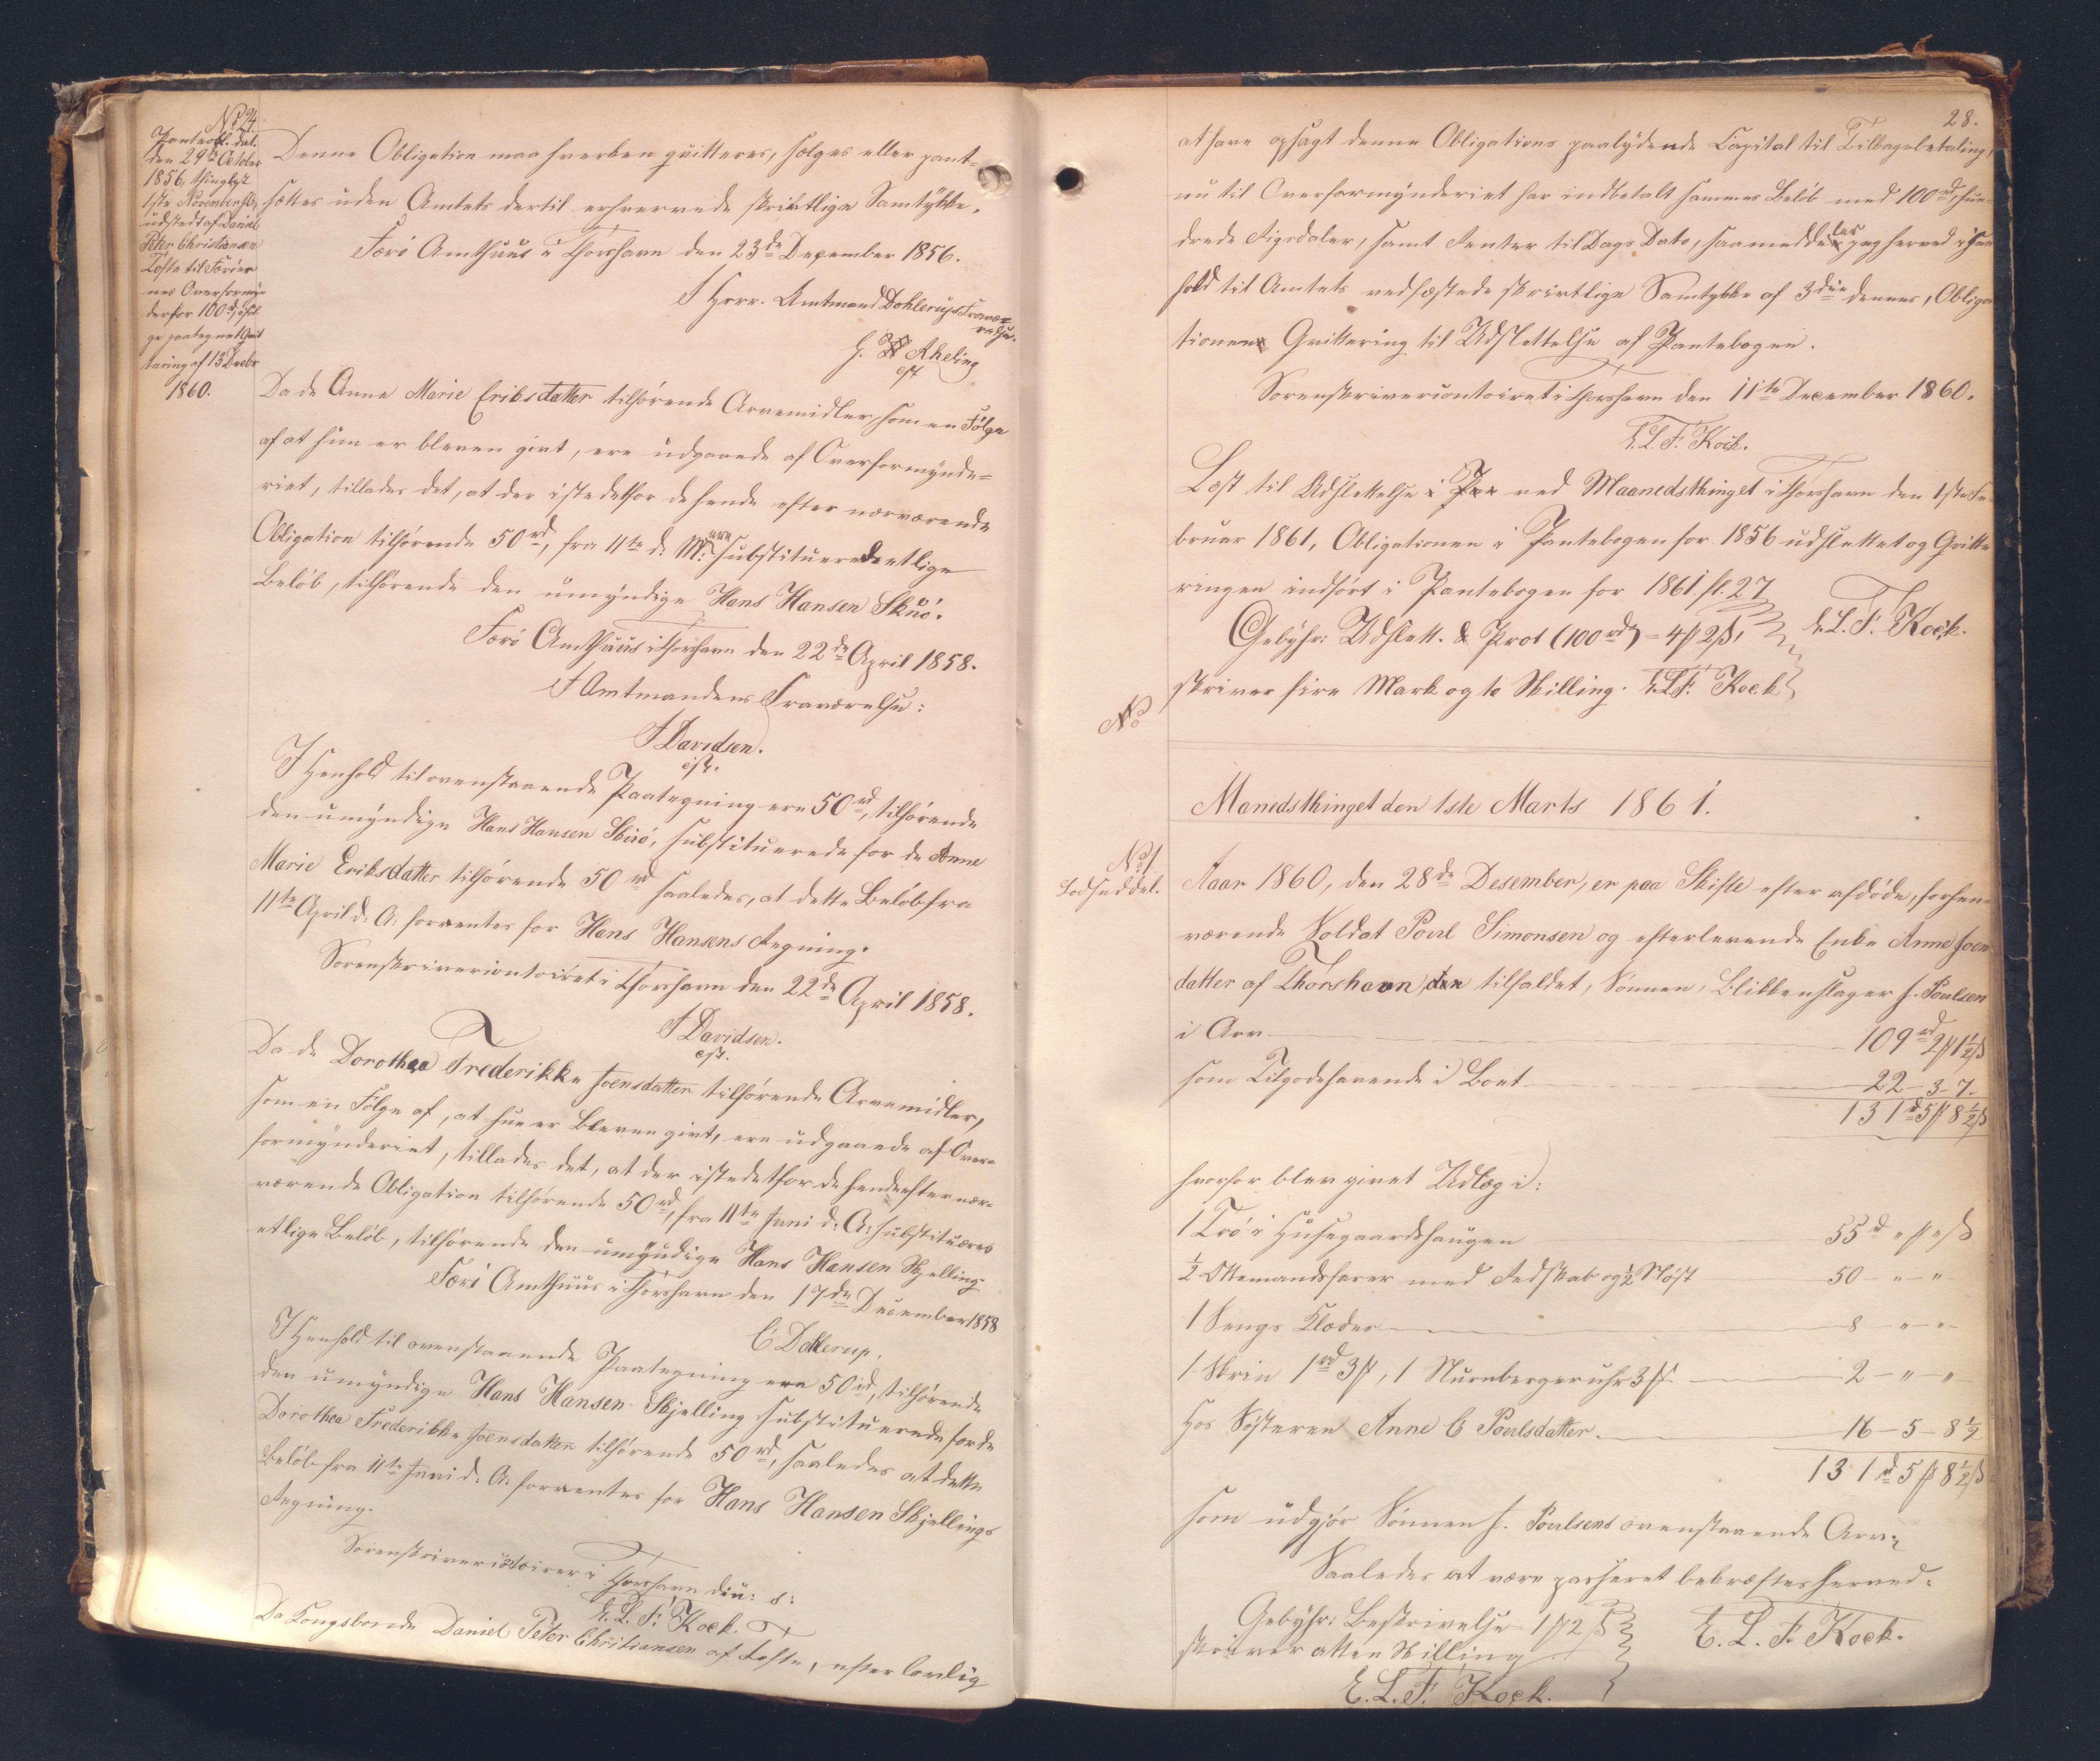 No 24.
Pantobl. dat.
den 29de October
1856, thinglyst
1ste November s.A.
udstedt af Daniel
Peter Christiansen
Tofte til Færøer
nes Overformyn
deri for 100 rd, iføl
ge paategnet Qvit
tering af 13 Decbr
1860.
Denne Obligation maa hverken qvitteres, sælges eller pant-
sættes uden Amtets dertil erhvervede skrivtlige Samtykke.
Færø Amthuus i Thorshavn den 23de December 1856.
I Herr. Amtmand Dahlerups Fravæ-
relse.
H. Aheling
cst
Da de Anne Marie Eriksdatter tilhørende Arvemidler, som en Følge
af at hun er bleven givt, ere udgaaede af Overformynde=
riet, tillades det, at der istedetfor de hende efter nærværende
Obligation tilhørende 50 rd, fra 11te d. M. substitueres etlige
Beløb, tilhørende den umyndige Hans Hansen Skuø.
Færø Amthuus i Thorshavn den 22de April 1858.
I Amtmandens Fraværelse:
J Davidsen.
cst.
I Henhold til ovenstaaende Paategning ere 50 rd, tilhørende
den umyndige Hans Hansen Skuø, substituerede for de Anne
Marie Eriksdatter tilhørende 50 rd saaledes, at dette Beløb fra
11te April d. A. forrentes for Hans Hansens Regning.
Sorenskrivercontoiret i Thorshavn den 22de April 1858.
J Davidsen.
cst.
Da de Dorothea Frederikke Joensdatter tilhørende Arvemidler,
som en Følge af, at hun er bleven givt, ere udgaaede af Over=
formynderiet, tillades det, at der istedetfor de hende efter nær-
værende Obligation tilhørende 50 rd, fra 11te Juni d. A. substitueres
etlige Beløb, tilhørende den umyndige Hans Hansen Skjelling.
Færø Amthuus i Thorshavn den 17de December 1858
C Dahlerup.
I Henhold til ovenstaaende Paategning ere 50 rd, tilhørende
den umyndige Hans Hansen Skjelling substituerede for de
Dorothea Frederikke Joensdatter tilhørende 50 rd, saaledes at dette
Beløb fra 11te Juni d. A. forrentes for Hans Hansen Skjellings
Regning.
Sorenskrivercontoiret i Thorshavn d. u. s:
E. L. F. Kock.
Da Kongsbonde Daniel Peter Christiansen af Tofte, efter lovlig
28.
at have opsagt denne Obligations paalydende Capital til Tilbagebetaling,
nu til Overformynderiet har indbetalt sammes Beløb med 100 rd, hun-
drede Rigsdaler, samt Renter til Dags Dato, saa meddeles jeg herved i Hen
hold til Amtets vedhæftede skrivtlige Samtykke af 3die dennes, Obliga
tionen Qvittering til Udslettelse af Pantebogen.
Sorenskrivercontoiret i Thorshavn den 11te December 1860.
E. L. F. Kock.
Læst til Udslettelse i Pan ved Maanedsthinget i Thorshavn den 1ste Fe-
bruar 1861, Obligationen i Pantebogen for 1856 udslettet og Qvitte
ringen indført i Pantebogen for 1861 fl. 27
E. L. F. Kock.
Gebyhr: Udslett. & Prot (100 rd) = 4 ꝑ 2 ß,
skriver fire Mark og to Skilling. E. L. F. Kock
No
Manedsthinget den 1ste Marts 1861.
No 1.
Lodseddel.
Aar 1860, den 28de Desember, er paa Skifte efter afdøde, forhen-
værende Soldat Poul Simonsen og efterlevende Enke Anne Joen
datter af Thorshavn, den tilfaldet, Sønnen, Blikkenslager J. Poulsen
i Arv 109 rd 2 ꝑ 1½ ß
som Tilgodehavende i Boet 22 - 3 - 7.
131 rd 5 ꝑ 8½ ß
hvorfor blev givet Udlæg i:
1 Trø i Husegaardshaugen 55 rd " ꝑ " ß
½ Ottemandsfarer med Redskab og ½ Nøst 50 - " - "
1 Sengs Klæder 8 - " - "
1 Skrin 1 rd 3 ꝑ, 1 Nurnbergeruhr 3 ꝑ 2 - " - "
Hos Søsteren Anne C Poulsdatter. 16 - 5 - 8½
131 rd 5 ꝑ 8½ ß
som udgjør Sønnen J. Poulsens ovenstaaende Arv.
Saaledes at være passeret bekræftes herved.
Gebyhr: Beskrivelse 1 ꝑ 2 ß
skriver atten Skilling
E. L. F. Kock.
E. L. F. Kock.